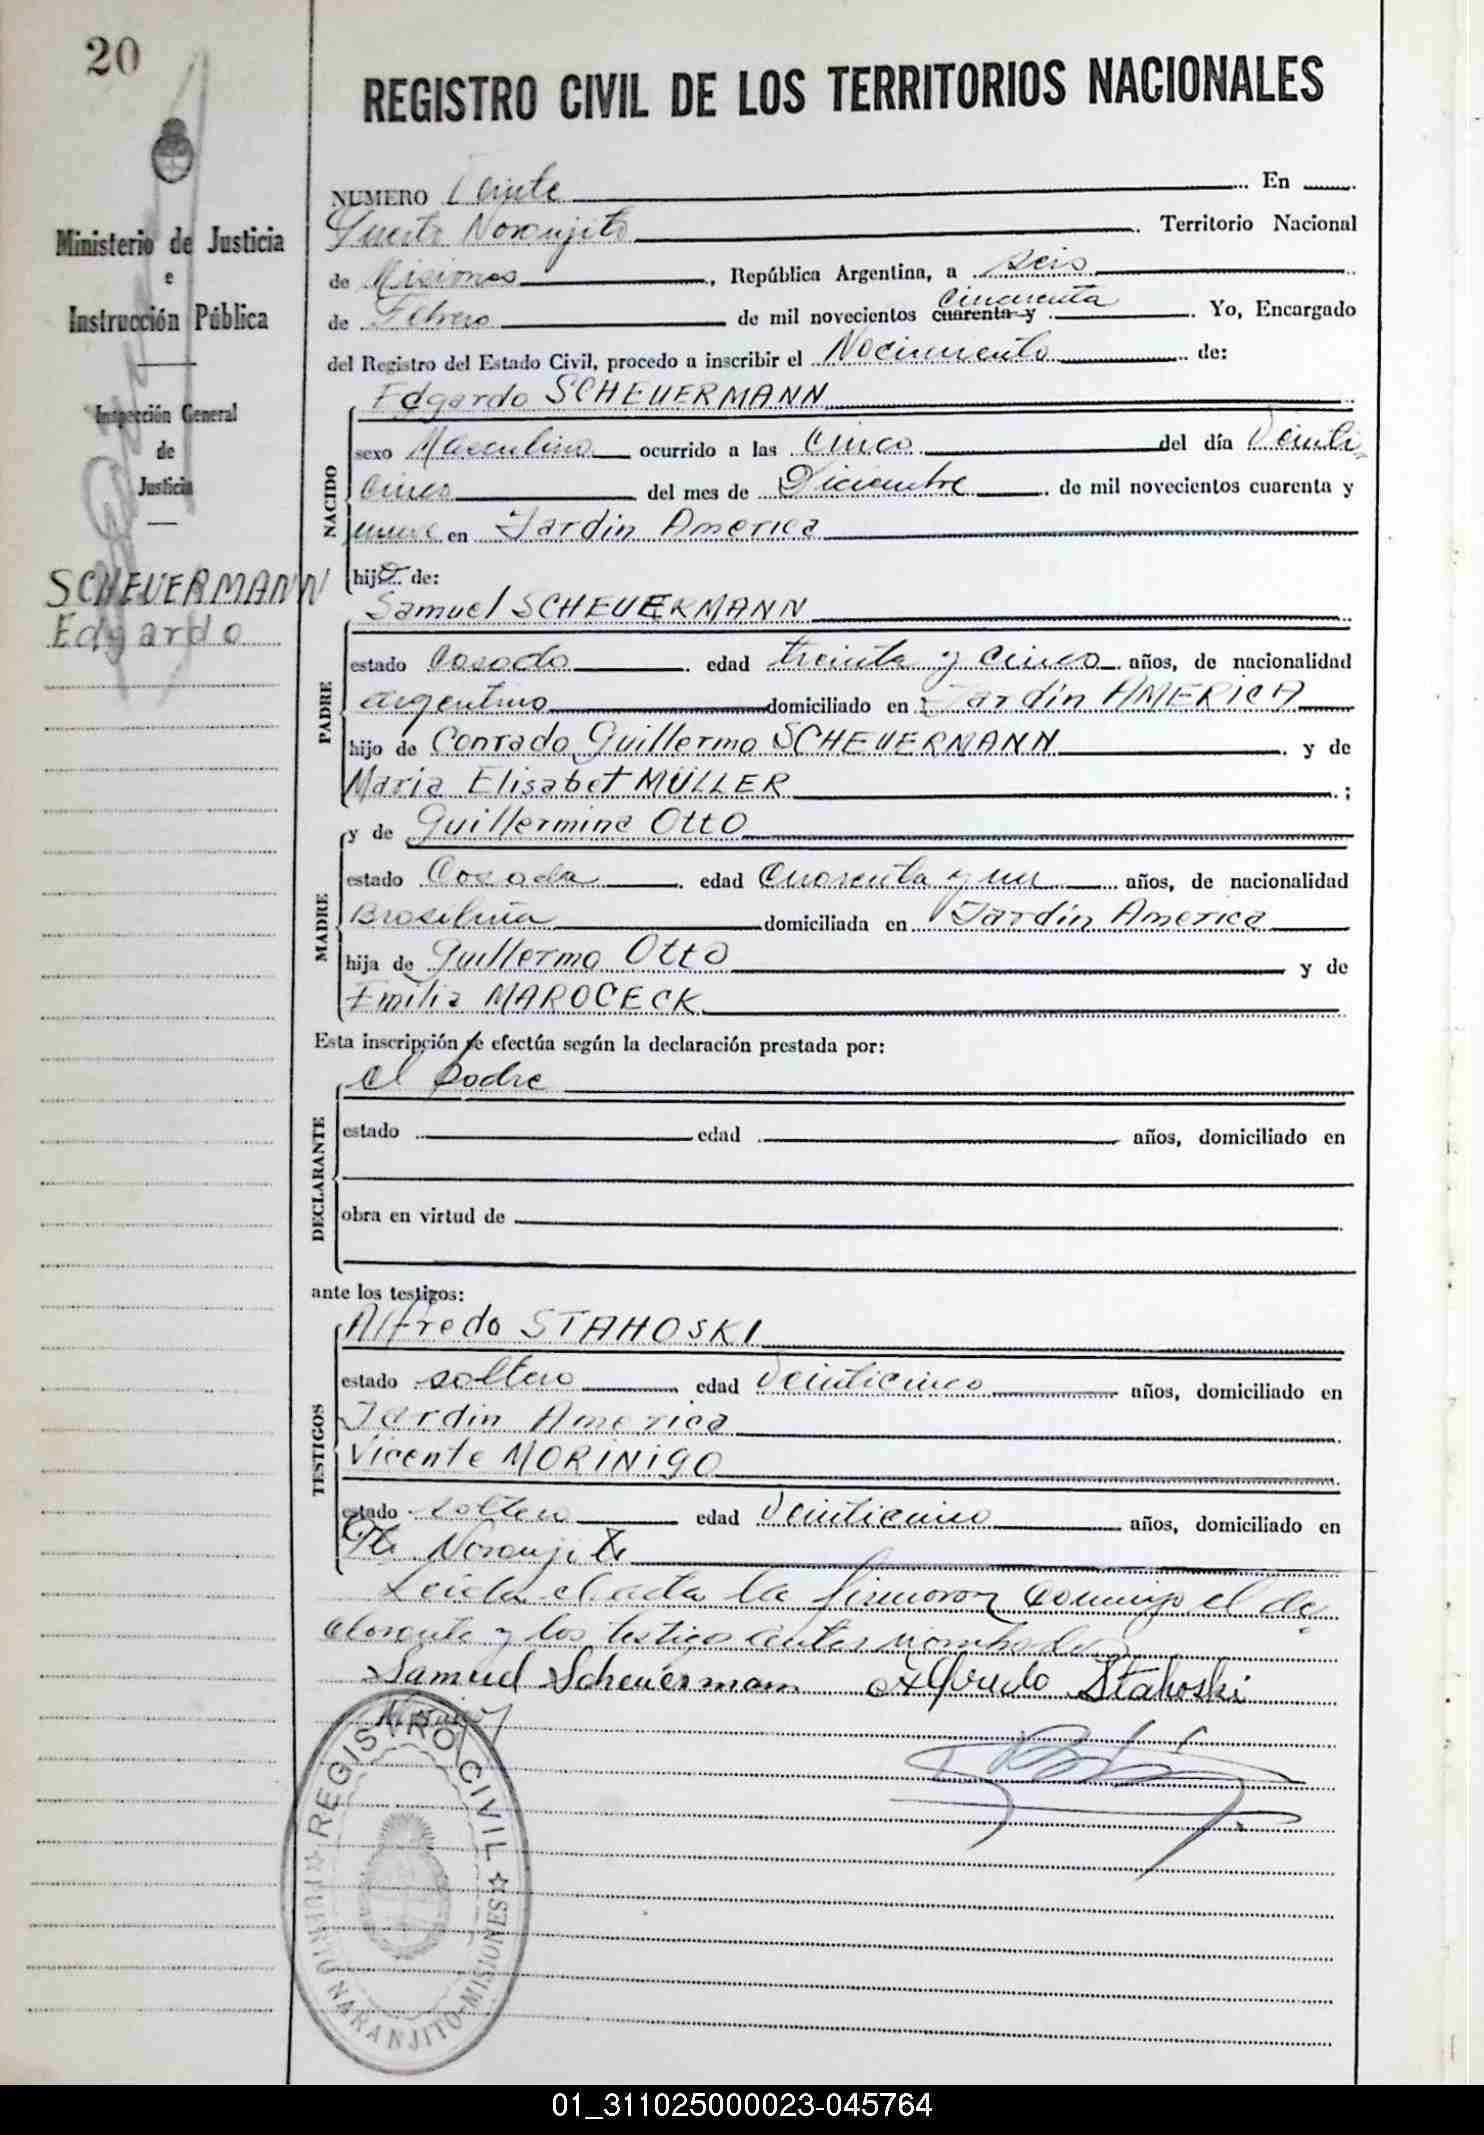 20
REGISTRO CIVIL DE LOS TERRITORIOS NACIONALES
Ministerio de Justicia
e
Instrucción Pública
Inspección General
de
Justicia
SCHEUERMANN
Edgardo
NUMERO Veinte En
Puerto Naranjito Territorio Nacional
de Misiones, República Argentina, a seis
de Febrero de mil novecientos cuarenta y cincuenta. Yo, Encargado
del Registro del Estado Civil, procedo a inscribir el Nacimiento de:
NACIDO
Edgardo SCHEUERMANN
sexo Masculino ocurrido a las cinco del día Veinti
cinco del mes de Diciembre de mil novecientos cuarenta y
nueve en Jardin America
hijo de:
PADRE
Samuel SCHEUERMANN
estado Casado edad treinta y cinco años, de nacionalidad
argentino domiciliado en Jardín AMERICA
hijo de Conrado Guillermo SCHEUERMANN y de
Maria Elisabet MÜLLER ;
MADRE
y de Guillermina Otto
estado Casada edad Cuarenta y un años, de nacionalidad
Brasileña domiciliada en Jardín America
hija de Guillermo Otto y de
Emilia MAROCECK
Esta inscripción se efectúa según la declaración prestada por:
DECLARANTE
el padre
estado edad años, domiciliado en
obra en virtud de
ante los testigos:
TESTIGOS
Alfredo STAHOSKI
estado soltero edad Veinticinco años, domiciliado en
Jardin America
Vicente MORINIGO
estado soltero edad Veinticinco años, domiciliado en
Pto Naranjito
Leida el acta la firmaron conmigo el de
clarante y los testigos antes nombrados
Samuel Scheuermann Alfredo Stahoski
REGISTRO CIVIL
PUERTO NARANJITO - MISIONES
01_311025000023-045764